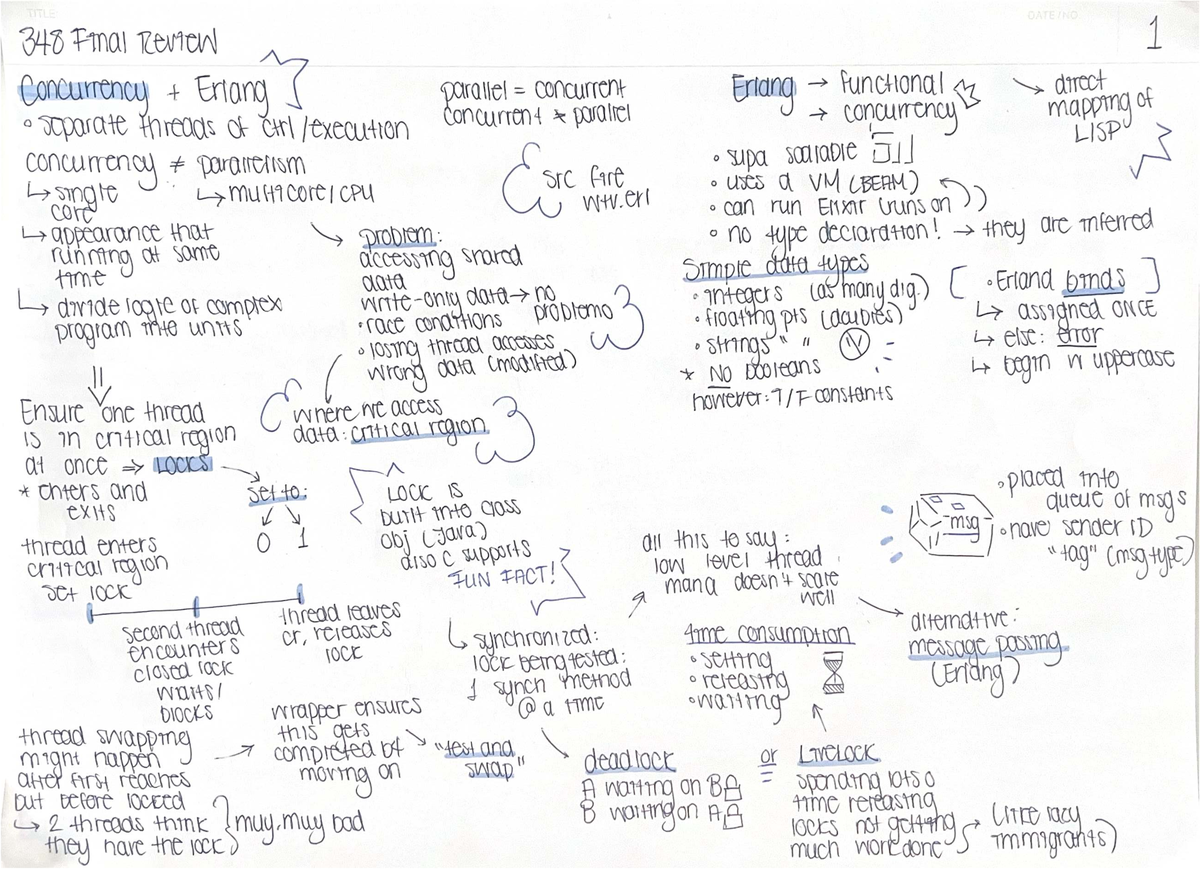 TITLE:
DATE/NO.
348 Final Review
1
Concurrency + Erlang
◦ separate threads of ctrl/execution
concurrency ≠ parallelism
↳ single
core
↳ multicore/CPU
↳ appearance that
running at same
time
↳ divide logic of complex
program into units
⇓
Ensure one thread
is in critical region
at once ⇒ LOCKS
* enters and
exits
set to:
0 1
thread enters
critical region
set lock
second thread
encounters
closed lock
waits/
blocks
thread leaves
cr, releases
lock
thread swapping
might happen
after first reaches
but before locked
↳ 2 threads think
they have the lock
} muy, muy bad
→ wrapper ensures
this gets
completed bf
moving on
"test and
swap"
parallel = concurrent
concurrent ≠ parallel
src fire
wtv.erl
problem:
accessing shared
data
write-only data → no
problemo
• race conditions
• losing thread accesses
wrong data (modified)
where we access
data: critical region
LOCK IS
built into class
obj (Java)
also C supports
FUN FACT!
↳ synchronized:
lock being tested:
1 synch method
@ a time
deadlock
A waiting on B
B waiting on A
or
LIVELOCK
spending lots o
time rereasing
locks not getting
much work done
(like lazy
immigrants)
time consumption
• setting
• releasing
• waiting
all this to say:
low level thread
mana doesn't scale
well
alternative:
message passing
(Erlang)
msg
◦ placed into
queue of msgs
◦ have sender ID
"tag" (msg type)
Erlang → functional
→ concurrency
→ direct
mapping of
LISP
◦ supa scalable
◦ uses a VM (BEAM)
◦ can run Elixir (runs on)
◦ no type declaration! → they are inferred
Simple data types
• integers (as many dig.)
• floating pts (doubles)
• strings " "
* No booleans
however: T/F constants
[ • Erland binds ]
↳ assigned ONCE
↳ else: error
↳ begin w uppercase